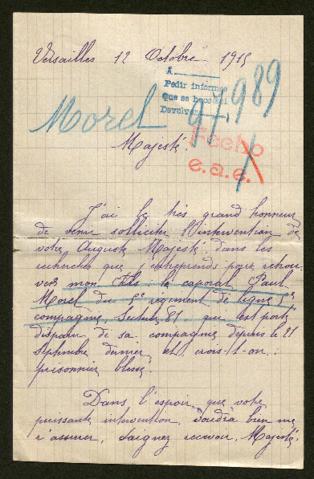 Versailles 12 Octobre 1915
A
Pedir informes
que se busca
Devolver
Morel 97.989
Fecho
e.a.e.
Majesté.
J'ai le très grand honneur
de venir solliciter l'intervention de
votre Auguste Majesté dans les
recherches que j'entreprends pour retrou
ver mon fils le caporal Paul
Morel du régiment de ligne
compagnie, Secteur 81 qui est porté
disparu de sa compagnie depuis le 21
Septembre dernier et croit-on
prisonnier blessé.
Dans l'espoir que votre
puissante intervention voudra bien me
l'assurer, daignez recevoir, Majesté,